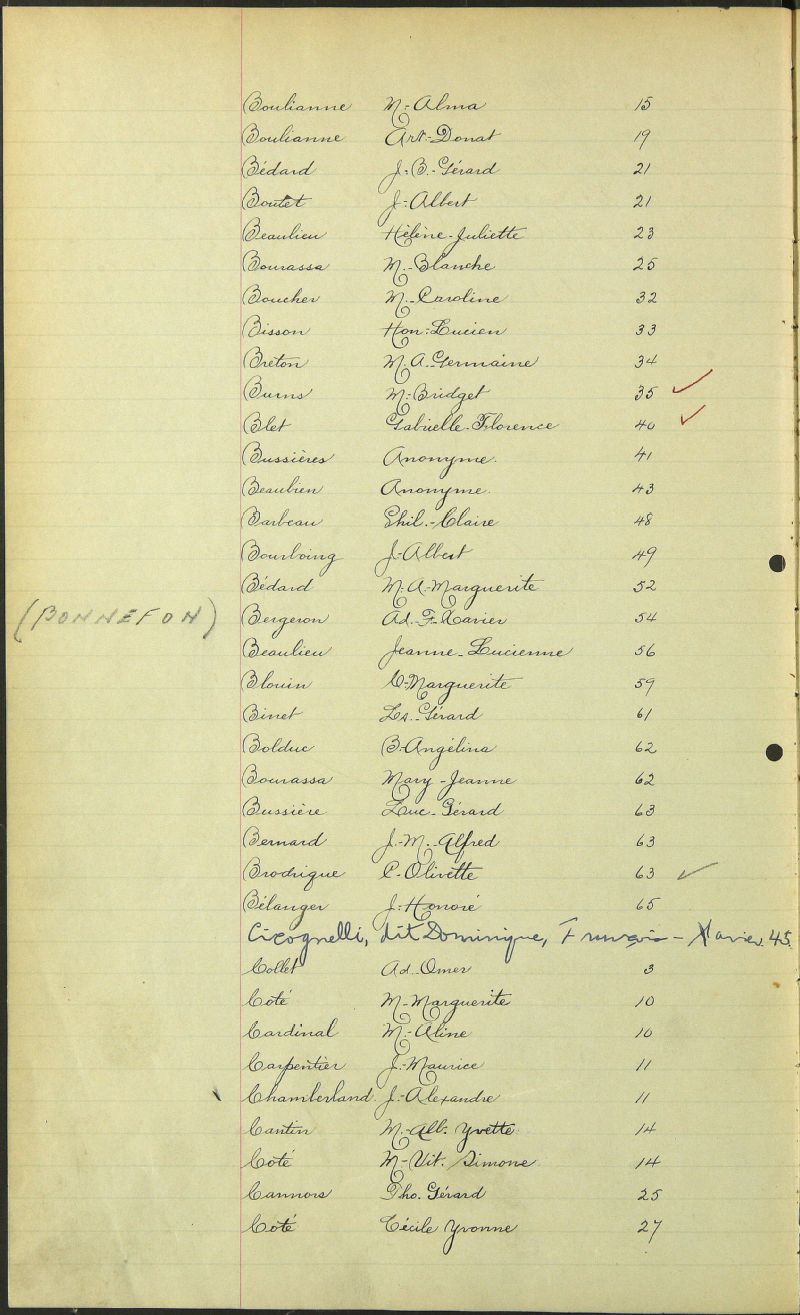 Boulianne M.-Alma 15
Boulianne Art.-Donat 19
Bédard J.-B.-Gérard 21
Boutet J.-Albert 21
Beaulieu Hélène-Juliette 23
Bourassa M.-Blanche 25
Boucher M.-Caroline 32
Bisson Hon.-Lucien 33
Breton M.A.-Germaine 34
Burns M.-Bridget 35 ✓
Blet Gabrielle-Florence 40 ✓
Bussières Anonyme. 41
Beaubien Anonyme. 43
Barbeau Phil.-Claire 48
Bourboing J.-Albert 49
Bédard M.A.-Marguerite 52
(BONNEFON) Bergeron Ad.-F.-Xavier 54
Beaulieu Jeanne-Lucienne 56
Blouin C.-Marguerite 59
Binet Ls.-Gérard 61
Bolduc B-Angélina 62
Bourassa Mary-Jeanne 62
Bussière Luc-Gérard 63
Bernard J.-M.-Alfred 63
Brodrigue C-Olivette 63 ✓
Bélanger J.-Honoré 65
Cicognelli, dit Dominique, François-Xavier. 45.
Collet Ad.-Omer 3
Côté M.-Marguerite 10
Cardinal M.-Aline 10
Carpentier J.-Maurice 11
Chamberland J.-Alexandre 11
Cantin M.-Alb. Yvette 14
Côté M.-Vit. Simone 14
Cannors Tho. Gérard 25
Côté Cécile Yvonne 27